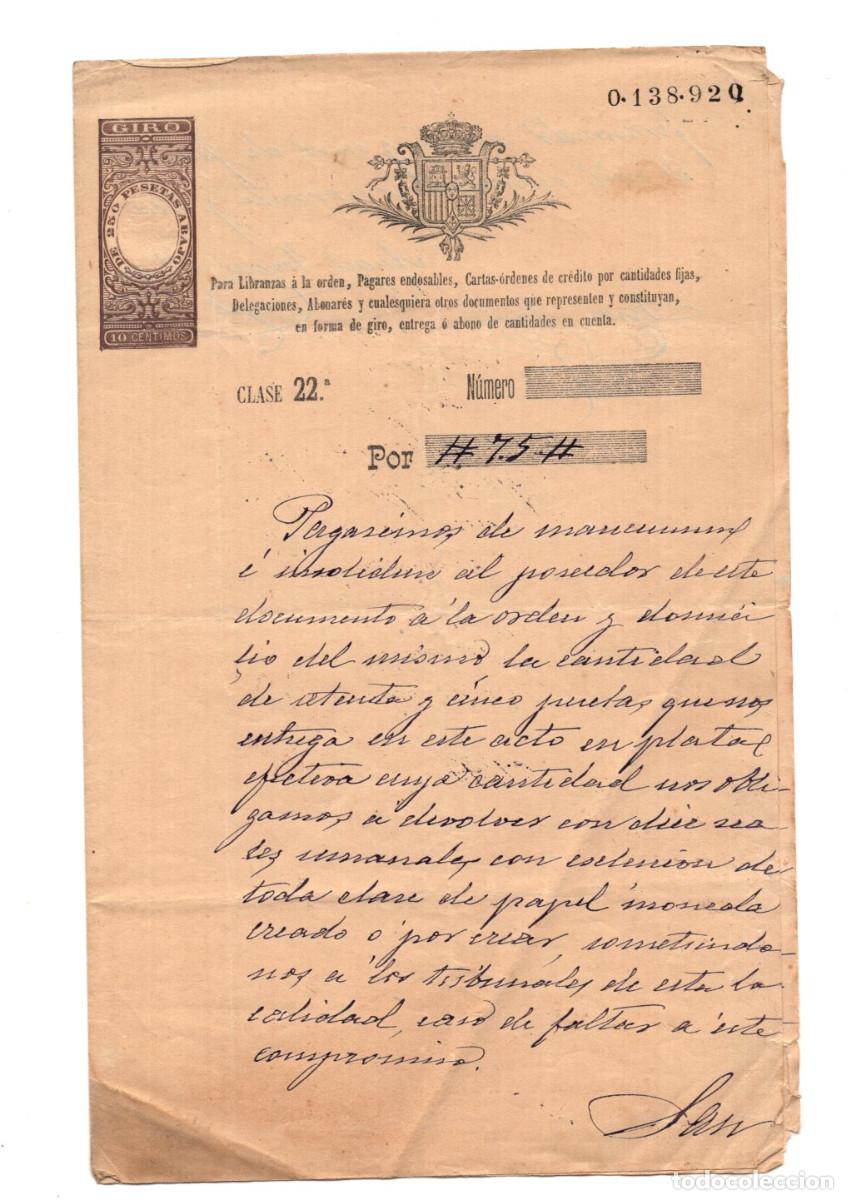 0.138.920
GIRO
DE 250 PESETAS ABAJO
10 CENTIMOS
Para Libranzas á la orden, Pagares endosables, Cartas-órdenes de crédito por cantidades fijas,
Delegaciones, Abonarés y cualesquiera otros documentos que representen y constituyan,
en forma de giro, entrega ó abono de cantidades en cuenta.
CLASE 22.ª Número
Por # 75 #
Pagaremos de mancumun
é insolidun al poseedor de este
documento á la orden y domici
lio del mismo la cantidad
de setenta y cinco pesetas que nos
entrega en este acto en plata
efectiva cuya cantidad nos obli-
gamos a devolver con diez rea-
les semanales con esclusion de
toda clase de papel moneda
creado o por crear, sometiendo-
nos a los tribunales de esta lo-
calidad, caso de faltar a este
compromiso.
San
todocoleccion